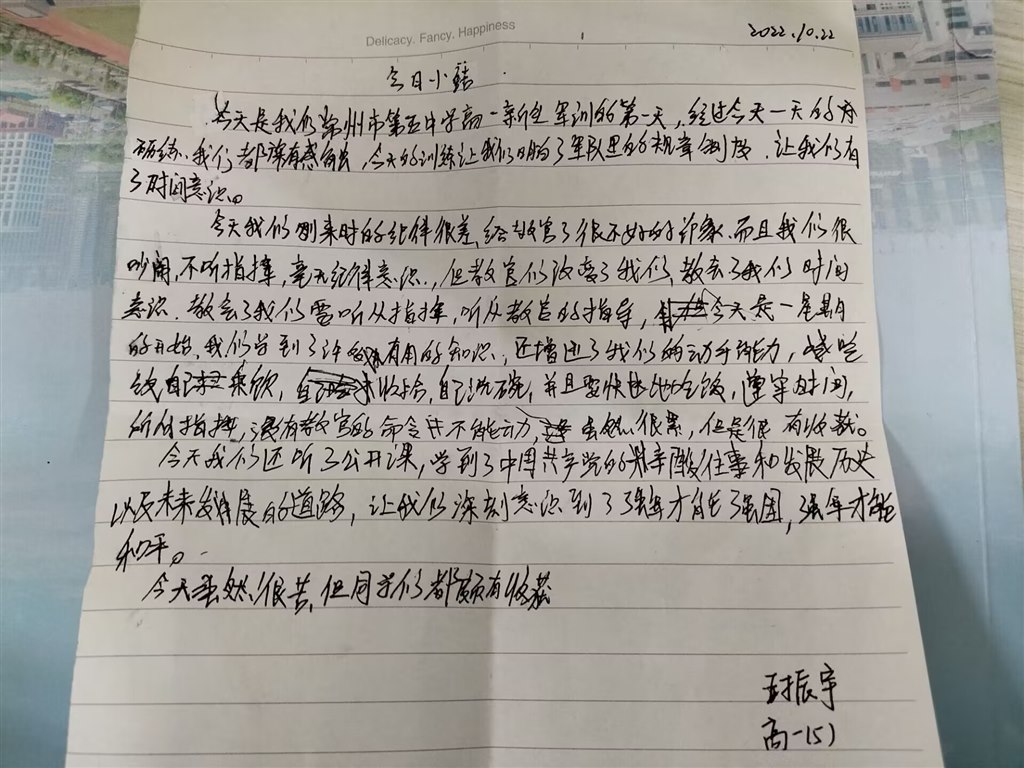 Delicacy. Fancy. Happiness
2022.10.22
今日小结
今天是我们常州市第五中学高一新生军训的第一天，经过今天一天的
我们都深有感触，今天的训练让我们明白了军队里的规章制度，让我们有
了时间意识。
今天我们刚来时的纪律很差，给教官了很不好的印象，而且我们很
吵闹，不听指挥，毫无纪律意识，但教官们改变了我们，教会了我们时间
意识，教会了我们需听从指挥，听从教官的指导，今天是一星期
的开始，我们学到了许多有用的知识，还增进了我们的动手能力，
自己来做，收拾，自己洗碗，并且要快速地吃饭，遵守时间，
听从指挥，没有教官的命令并不能动，虽然很累，但是很有收获。
今天我们还听了公开课，学到了中国共产党的光辉往事和发展历史
以及未来发展的道路，让我们深刻意识到了强军才能强国，强军才能
和平。
今天虽然很苦，但同学们都颇有收获
封振宇
高一(5)